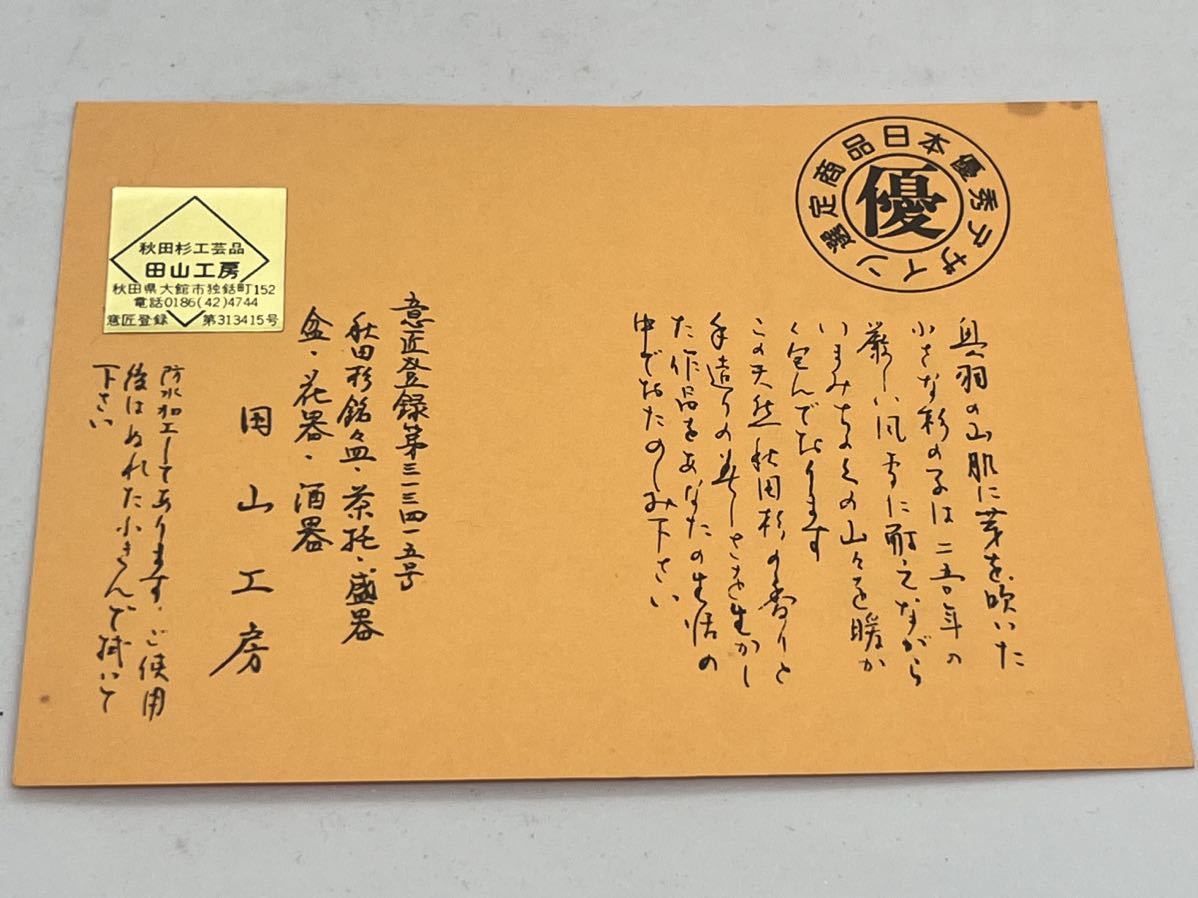 日本優秀デザイン選定商品
優
奥羽の山肌に芽を吹いた
小さな杉の子は二五〇年の
厳しい風雪に耐えながら
いまみちのくの山々を暖か
く包んでおります
この天然秋田杉の香りと
手造りの美しさを生かし
た作品をあなたの生活の
中でおたのしみ下さい
意匠登録第三一三四一五号
秋田杉銘々皿・茶托・盛器
盆・花器・酒器
田山工房
防水加工してあります。ご使用
後はぬれた小きんで拭いて
下さい
秋田杉工芸品
田山工房
秋田県大館市独鈷町152
電話0186(42)4744
意匠登録 第313415号